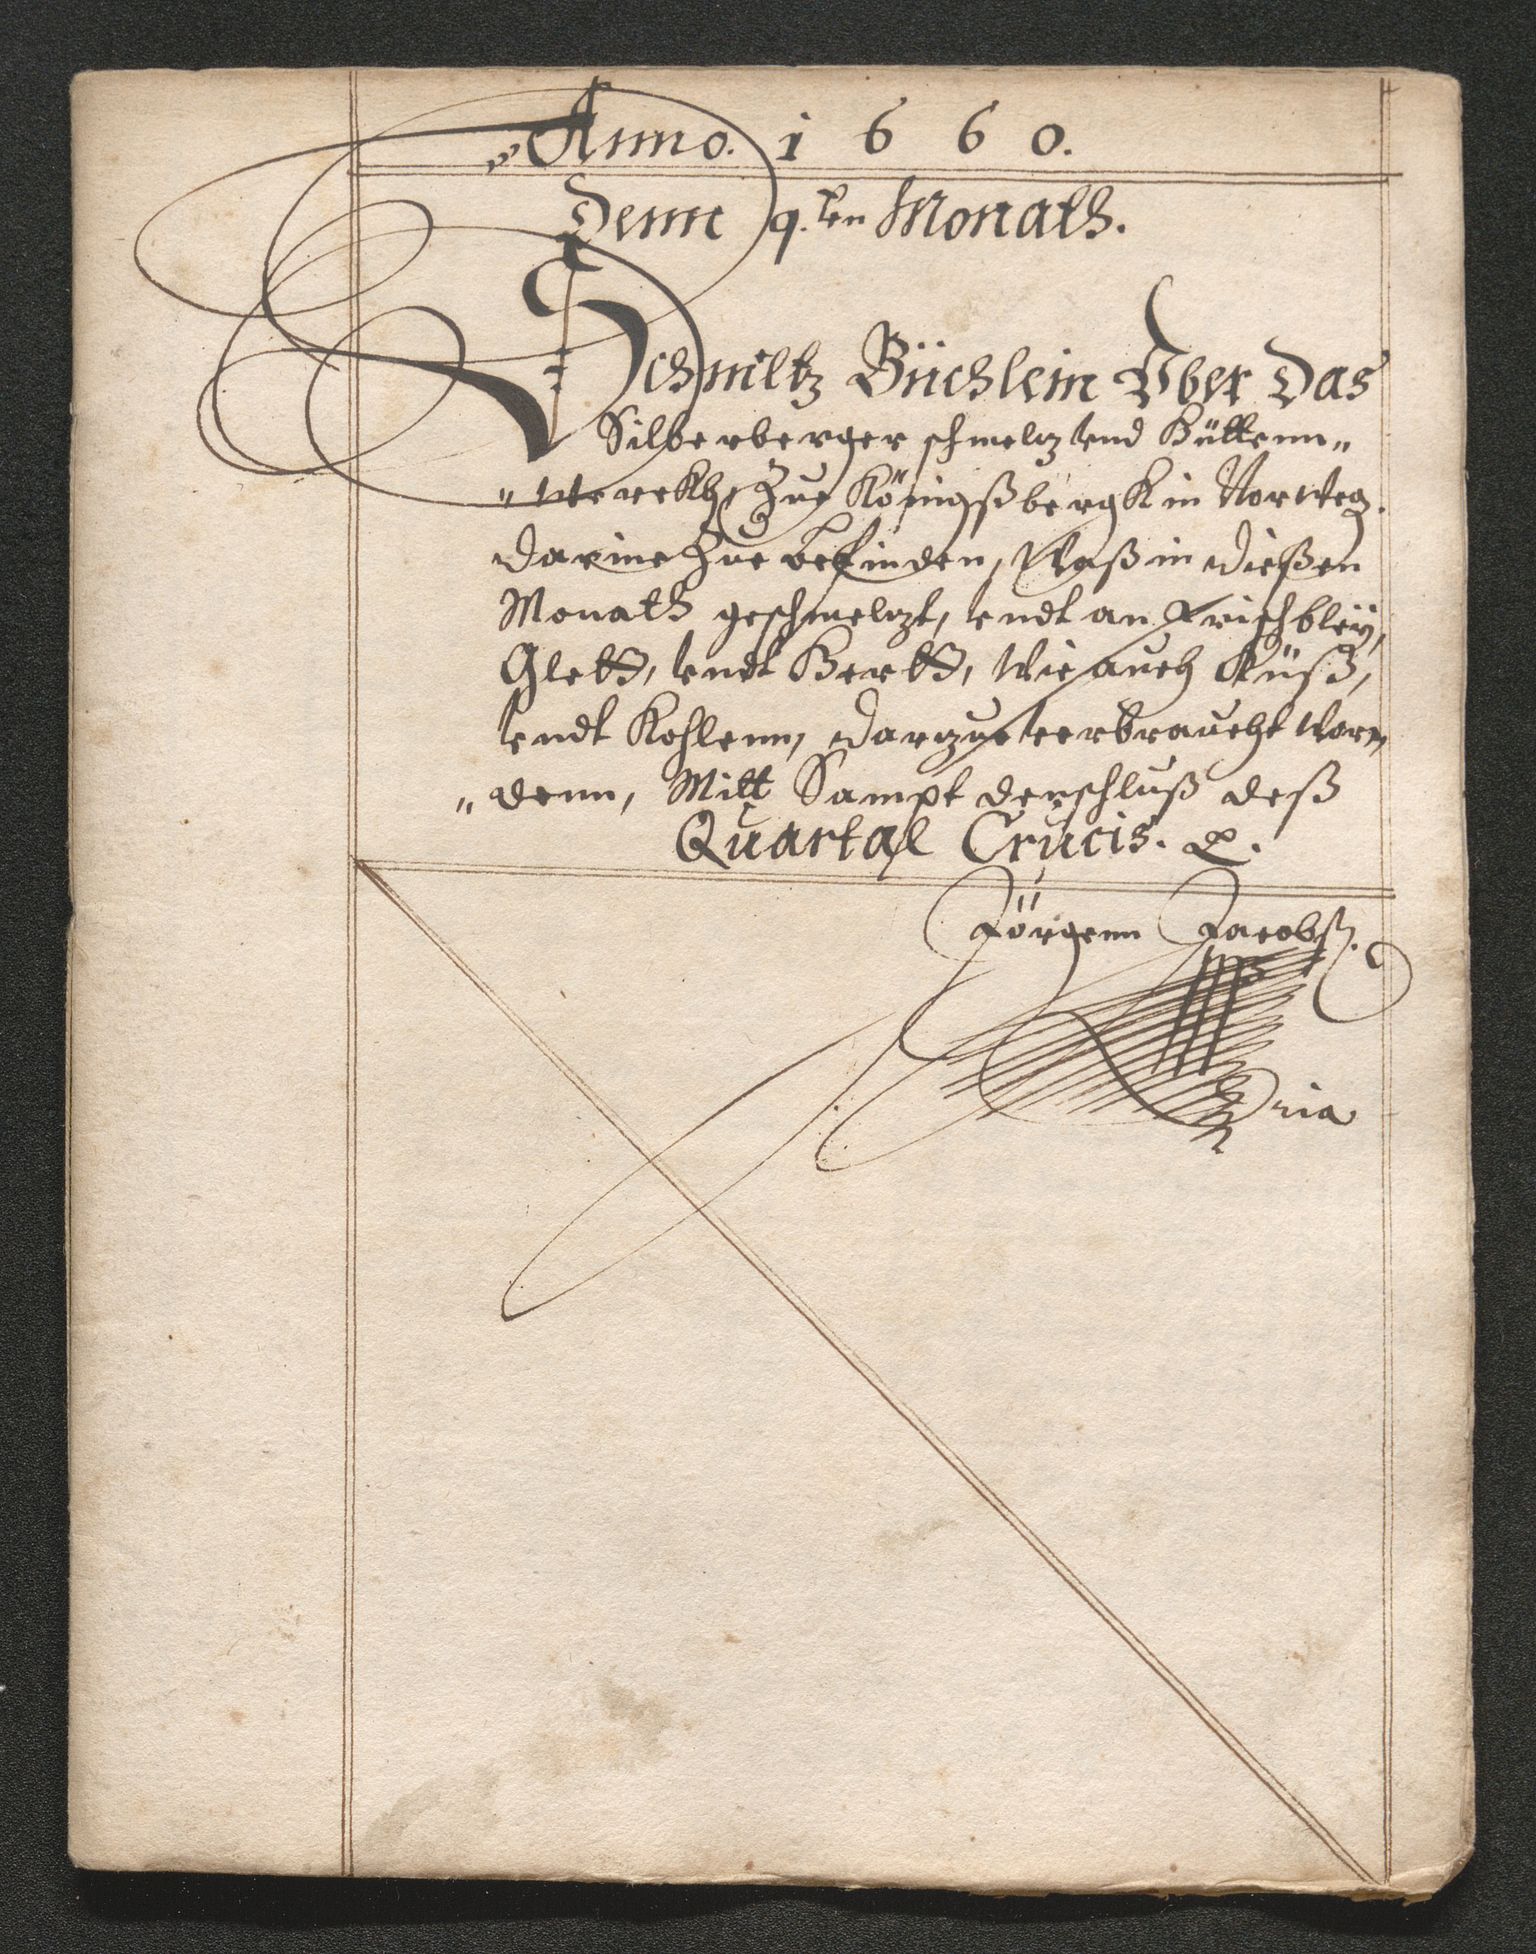 Anno. 1 6 6 0.
Denn 9.ten Monath.
Schmeltz Büchlein Vber Das
Silberberger schmeltz vnd Hüttenn„
„werckh, Zue Königßbergk in Norweg.
darine Zue befinden, Waß in dießen
Monath geschmeltzt, vndt an Frischbleÿ,
Glett, vndt Hertt, Wie auch Küß,
vndt Kohlenn, darzue verbraucht Wor„
„denn, Mitt Sampt der schluß deß
Quartal Crucis.
Jörgenn Jacobß.